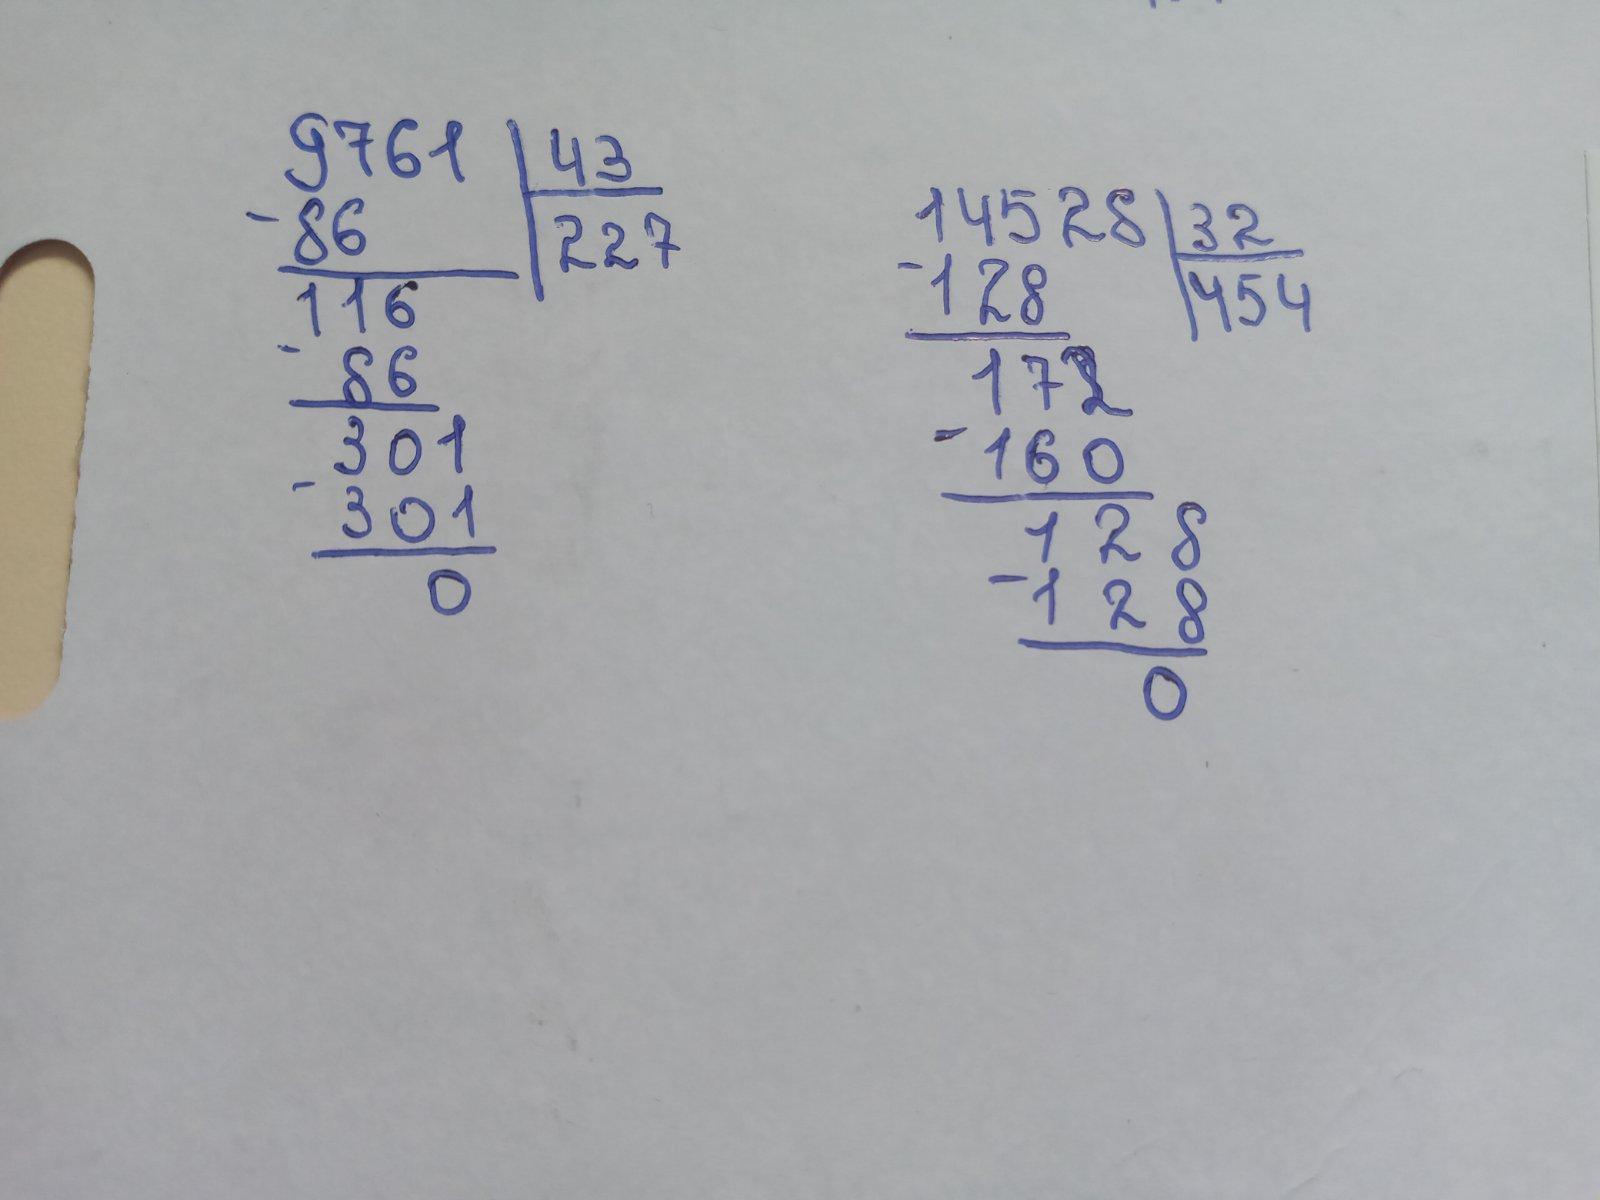 9761 | 43
-86 | 227
116
- 86
301
- 301
0
14528 | 32
-128 | 454
172
- 160
128
- 128
0